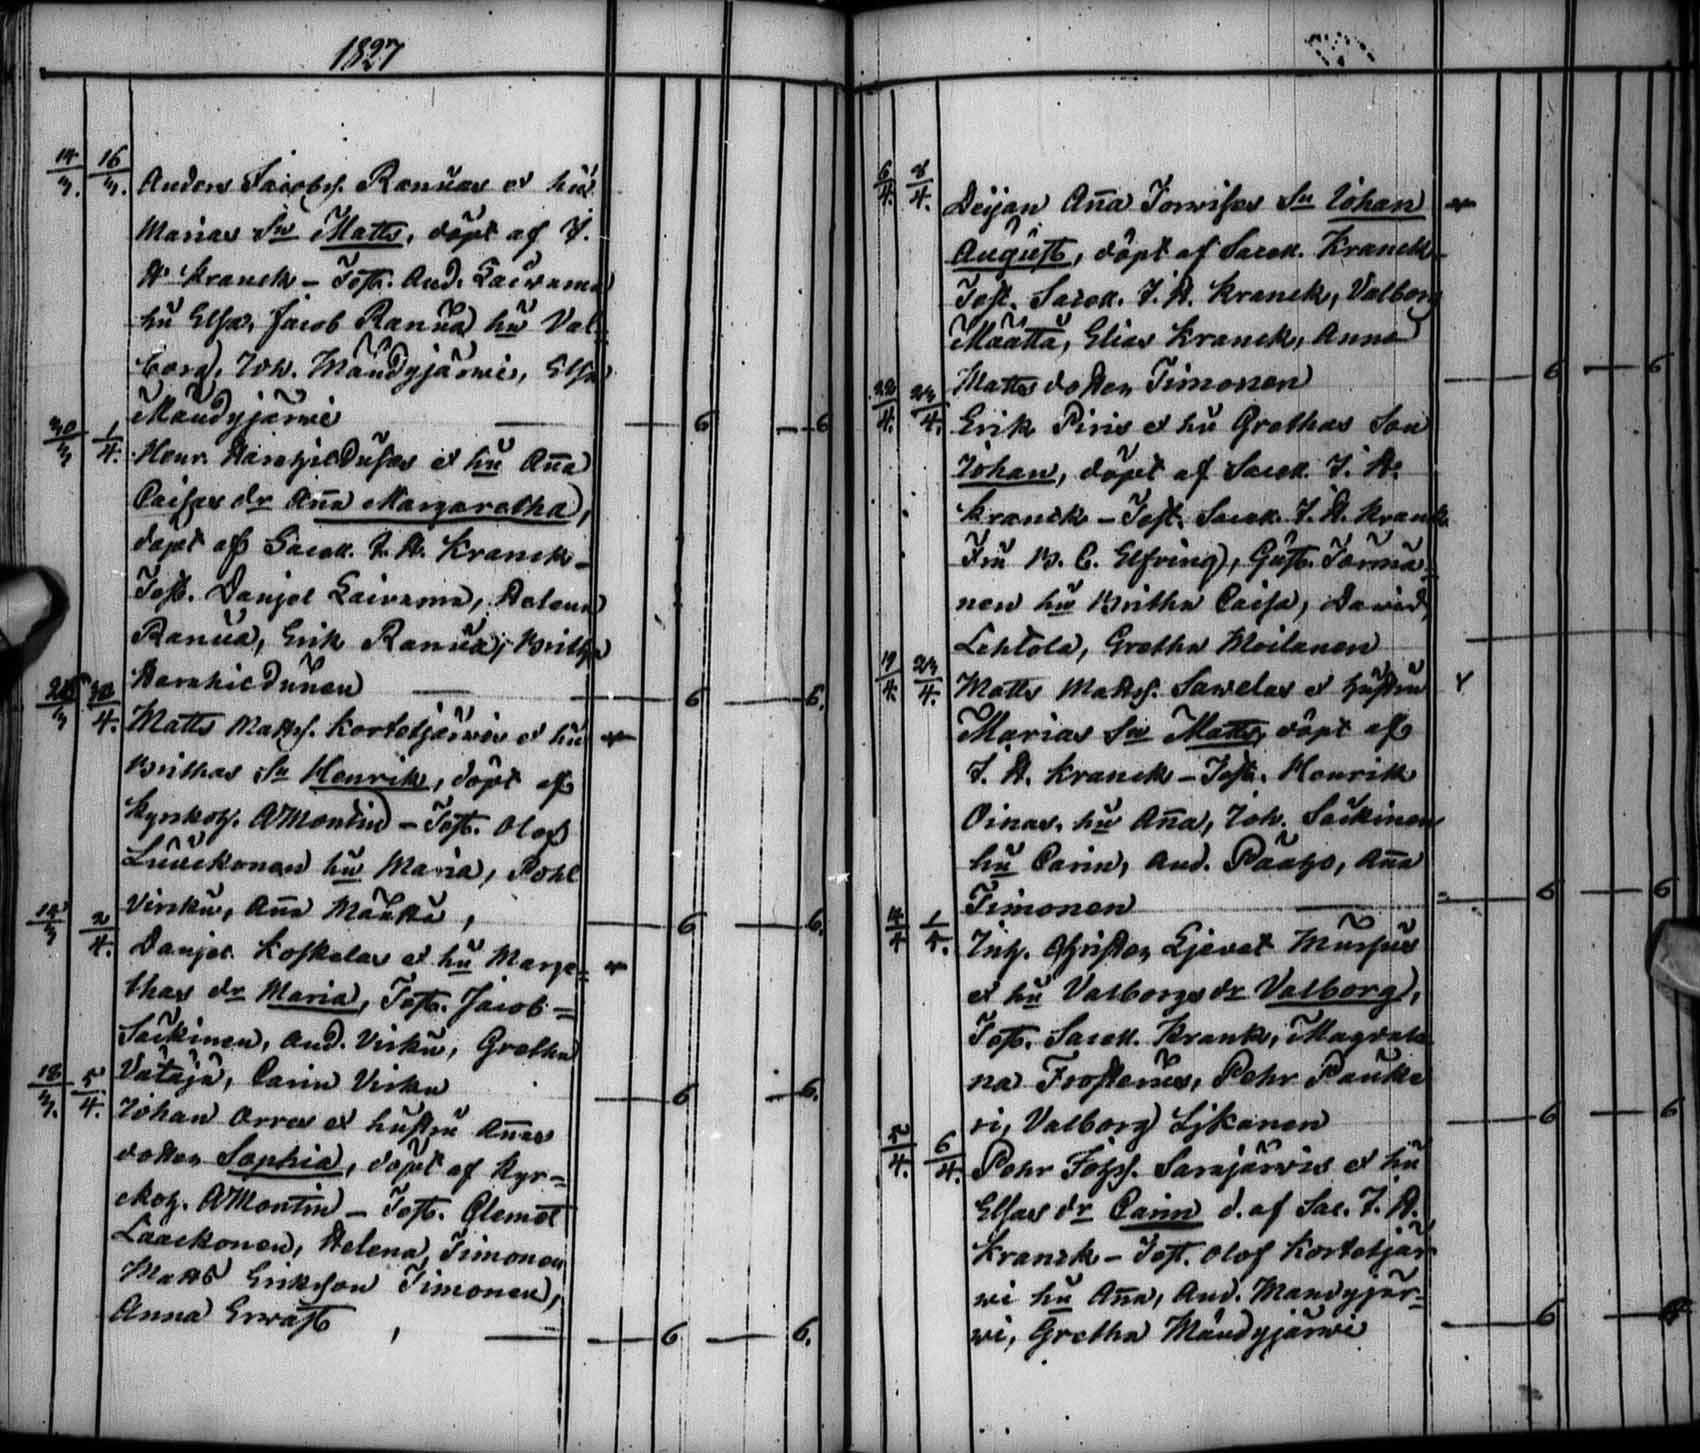 1827
14/3. 16/3. Anders Jacobss. Ranuas et hu
Marias Sn Matts, döpt af J.
A. Kranck – Test. And. Lairama
hu Elsa, Jacob Ranua hu Val-
borg, Joh. Mändyjärwi, Elsa
Mändyjärwi 6 6
30/3 1/4. Henr. Dusas et hu Aña
Caisas dr Aña Margaretha,
döpt af Sacell. J. A. Kranck –
Test. Danjel Lairama, Helena
Ranua, Erik Ranua, Britha
6 6.
Matts Matss. Kortetjärwis et hu
Brithas Sn Henrik, döpt af
Kyrkoh. A Montin – Test. Olof
Luuckonen hu Maria, Pohl
Virku, Aña Määttä, 6 6.
14/3 2/4. Danjel Koskelas et hu Marge-
thas dr Maria, Test. Jacob
Säckinen, And. Virku, Gretha
Vätäjä, Carin Virku 6 6.
18/3. 5/4. Johan Orres et hustru Añas
dotter Sophia, döpt af Kyr=
ckoh. A Montin – Test. Clemet
Laackonen, Helena Timonen
Matts Eriksson Timonen,
Anna Erwast 6 6.
6/4. 8/4. Anna Sn Johan
August, döpt af Sacell. Kranck –
Test. Sacell. J. A. Kranck, Valborg
Määttä, Elias Kranck, Anna
Matts dotter Timonen 6 6
22/4. 23/4. Erik Piris et hu Grethas Son
Johan, döpt af Sacell. J. A.
Kranck – Test. Sacell. J. A. Kranck
Fru B. C. Elfving, Gust. Törmä-
nen hu Britha Caisa, David
Lehtola, Gretha Moilanen
19/4. 23/4. Matts Matss. Sawelas et hustru
Marias Sn Matts, döpt af
J. A. Kranck – Test. Henrik
Oinas, hu Aña, Joh. Säckinen
hu Carin, And. Aña
Timonen 6 6
Christer Ljevet
et hu Valborgs dr Valborg,
Test. Sacell. Krank, Magdale
na Frosterus, Pehr Pauke
ri, Valborg Lykanen 6 6
5/4. 6/4. Pehr Sarajärwis et hu
Elsas dr Carin d. af Sac. J. A.
Kranck – Test. Olof Kortetjär
wi hu Aña, And. Mändyjär-
wi, Gretha Mändyjärwi 6 6